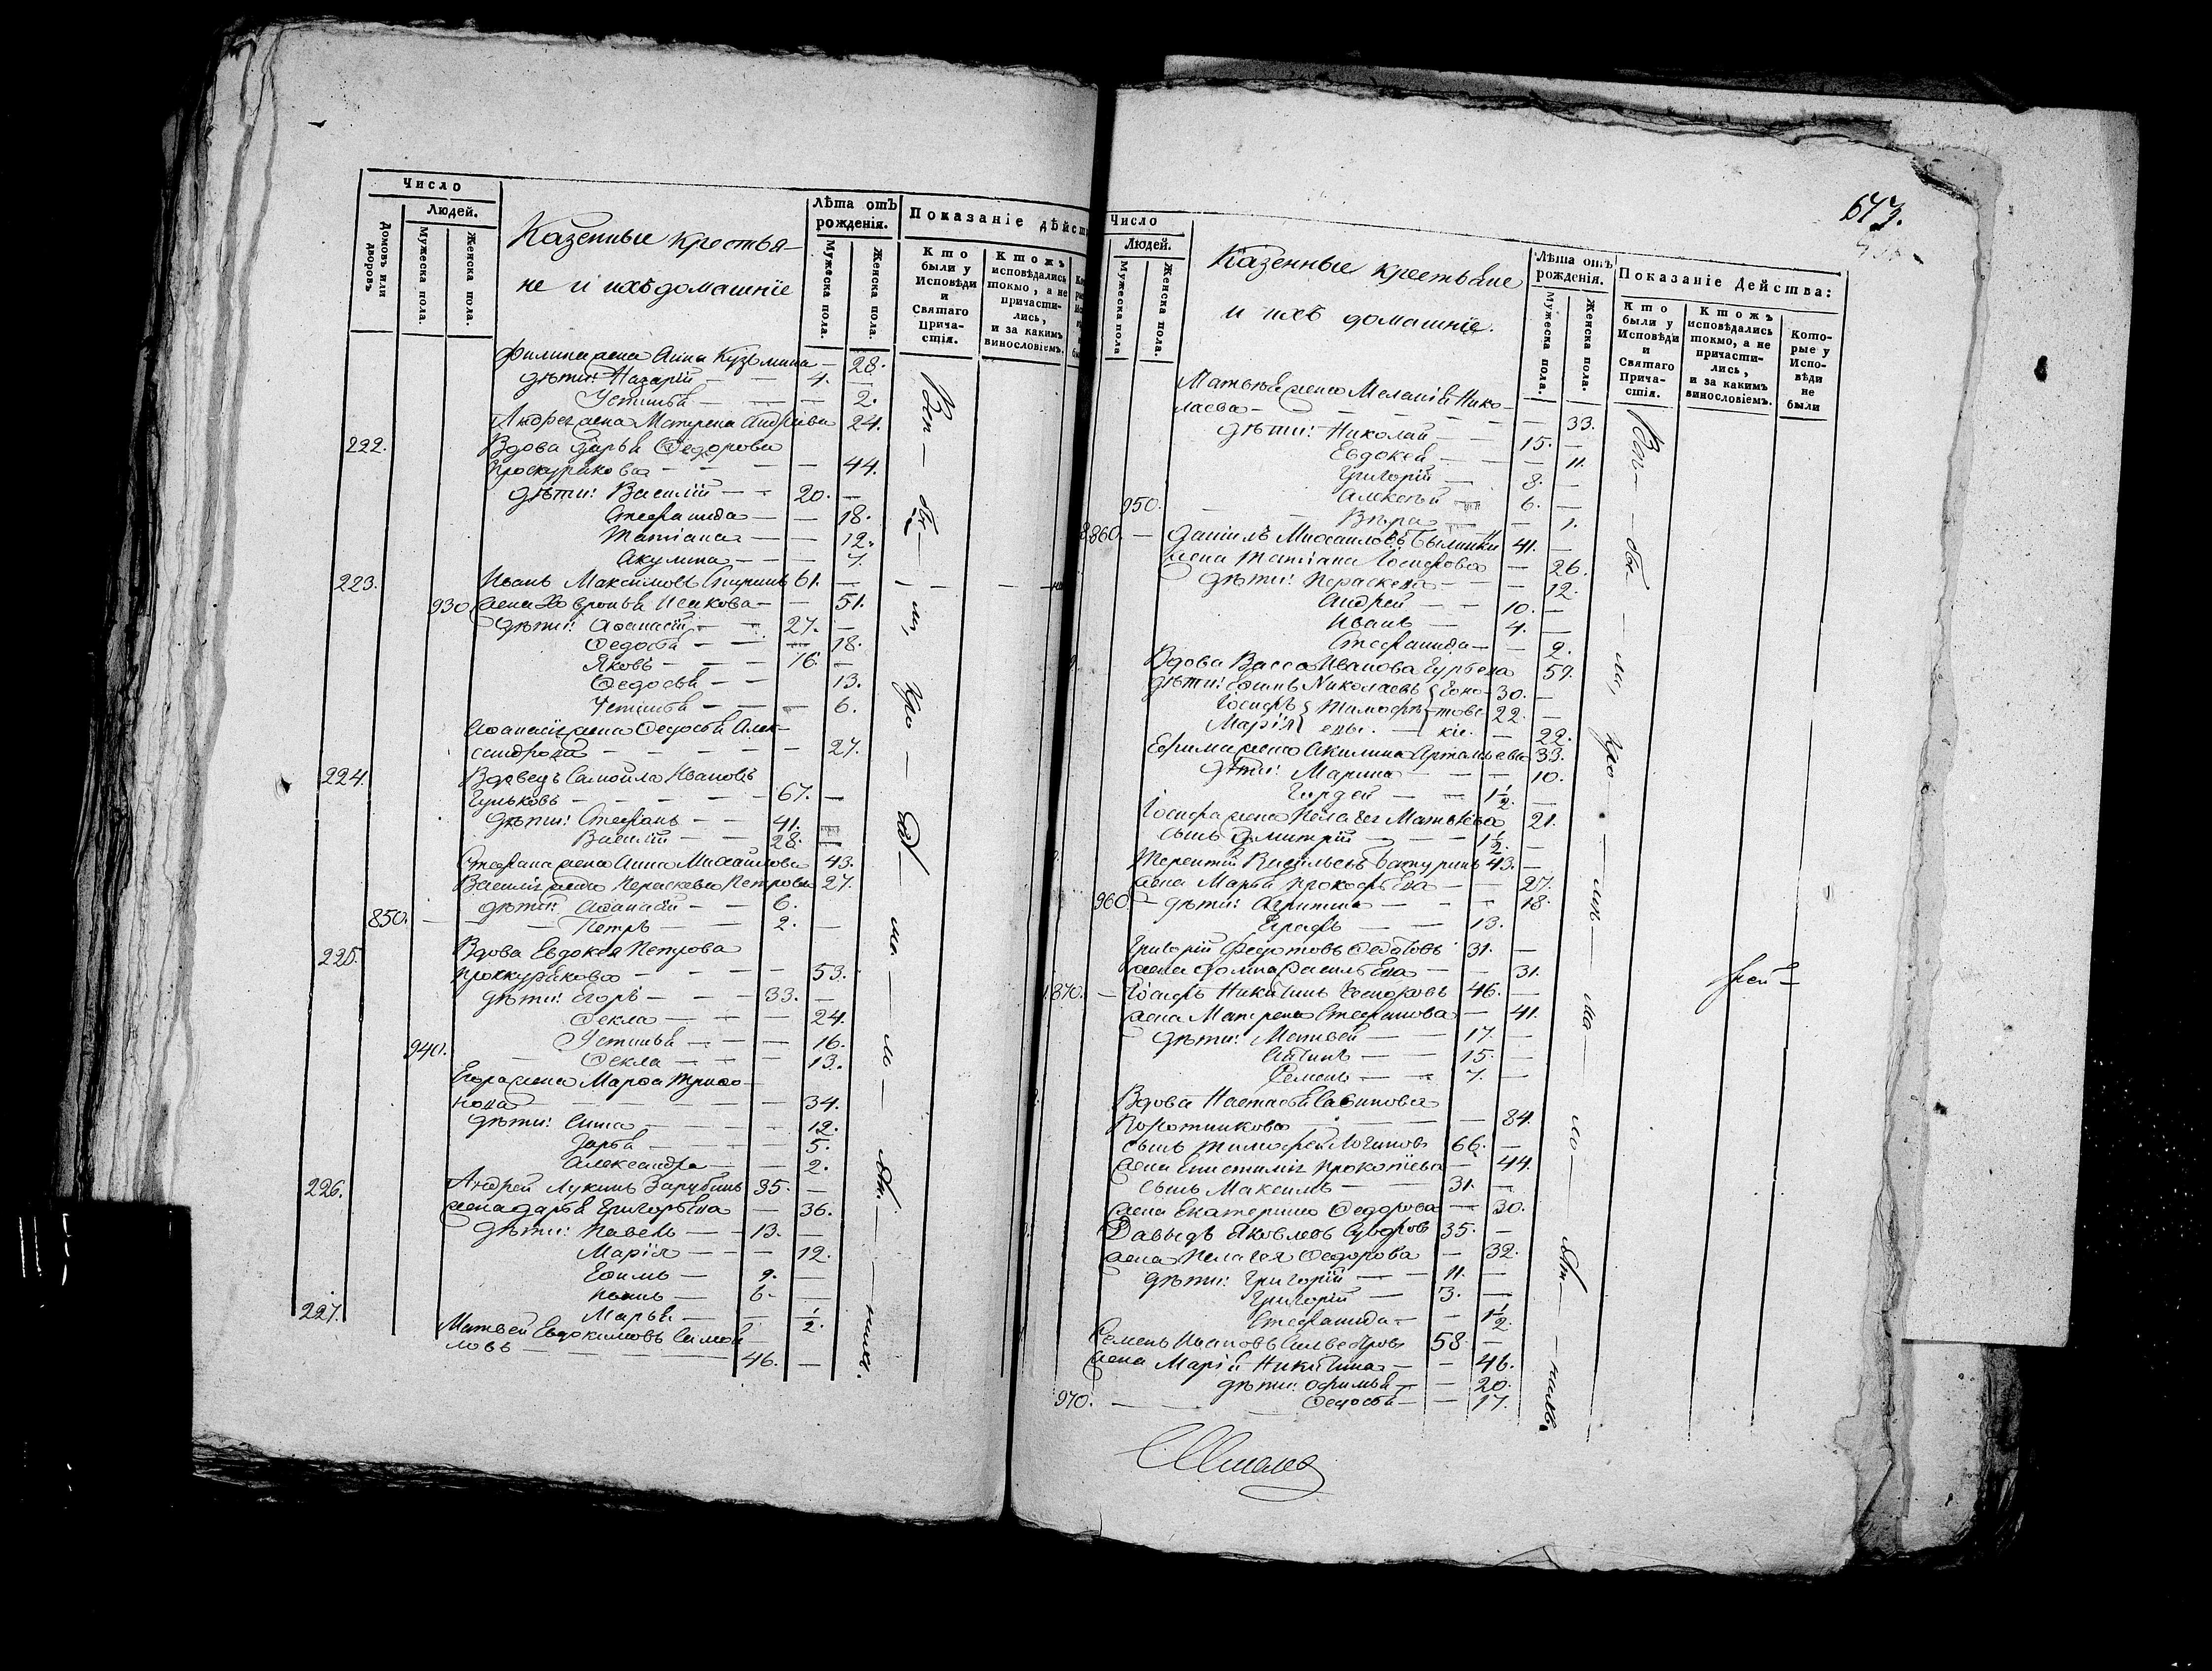 Число
Людей.
Домовъ или дворовъ.
Мужеска пола.
Женска пола.
Казенные крестья-
не и ихъ домашніе
Лѣта отъ рожденія.
Мужеска пола.
Женска пола.
Показаніе дѣйст
Кто были у Исповѣди и Святаго Прича-стія.
Ктожъ исповѣдались токмо, а не причасти-лись, и за какимъ винословіемъ.
Филипа жена Анна Кузьмина — 28.
дѣти: Назарій — — 4. —
Устинья — — — 2.
Андрея жена Матрена Андреева 24.
222. Вдова Дарья Федорова
Проскурякова — — — — 44.
дѣти: Василій — — 20. —
Стефанида — — 18.
Татіана — — 12.
Акулина — — 7.
223. Иванъ Максимовъ 61. —
930. жена Ховронья Исакова — — 51.
дѣти: Афанасій — — 27. —
Федосья — — — 18.
Яковъ — — — 16. —
Федосья — — 13.
Устинья — — — 6.
Афанасія жена Федосья Алек-
сандрова — — — — — 27.
224. Вдовецъ Самойла Ивановъ
Гуньковъ — — — — — 67. —
дѣти: Стефанъ — — 41. —
Василій — — — 28. —
Стефана жена Анна Михайлова 43.
Василія жена Пераскевья Петрова 27.
дѣти: Афанасій — — 6.
850. — — Петръ — — 2. —
225. Вдова Евдокея Петрова
Проскурякова — — — — 53.
дѣти: Егоръ — — — 33. —
Фекла — — — — 24.
Устинья — — — 16.
940. — Фекла — — — 13.
Егора жена Марфа Трифо-
нова — — — — — — 34.
дѣти: — — — — 12.
Дарья — — — — 5.
Александра — — 2.
226. Андрей Лукинъ Зарубинъ 35. —
жена Дарья Григорьева — 36.
дѣти: Павелъ — — 13. —
Марія — — — 12.
Ефимъ — 9. —
— 6. —
Марья — — 1/2.
227. Матвей Евдокимовъ Самой-
ловъ — — — — — 46. —
673.
Число
Людей.
Мужеска пола
Женска пола.
Казенные крестьяне
и ихъ домашніе.
Лѣта отъ рожденія.
Мужеска пола.
Женска пола.
Показаніе Действа:
Кто были у Исповѣди и Святаго Прича-стія.
Ктожъ исповѣдались токмо, а не причасти-лись, и за какимъ винословіемъ.
Кото-рые у Испо-вѣди не были
Матвея жена Меланія Нико-
лаева — — — — — — 33.
дѣти: Николай — — 15. —
Евдокея — — — 11.
Григорій — 8. —
Алексей — 6. —
950. — — Вѣра — — 1.
860. — Даніилъ Михайловъ 41. —
жена Татіана Іосифова — 26.
дѣти: Пераскева — — — 12.
Андрей — — 10. —
Иванъ — 4. —
Стефанида — — 2.
Вдова Васса Иванова Гурьева 59.
дѣти: Ефимъ Николаевъ 30. —
Іосифъ Тимофѣ 22. —
Марія — 22.
Ефима жена Акилина Артамьева 33.
дѣти: Марина — — — 10.
Гордей — — 1 1/2. —
Іосифа жена Пелагея Матвѣева 21.
сынъ Дмитрій — — 1 1/2. —
Терентій Васильевъ Батуринъ 43. —
жена Марья Прокофьева — — 27.
960. — дѣти: — — — 18.
— 13.
Григорій Федотовъ 31. —
жена — — 31.
870. — Іосифъ Никитинъ 46. —
жена Матрена Стефанова — 41.
дѣти: Матвей — — 17. —
— — 15. —
Семенъ — — 7. —
Вдова Настасья Савинова
— — — — 84.
сынъ Тимофей Логиновъ 66. —
жена Епистимія Прокопіева — 44.
сынъ Максимъ — — — 31. —
жена Екатерина Федорова — 30.
Давыдъ Яковлевъ 35. —
жена Пелагея Федорова — 32.
дѣти: Григорій — — 11. —
Григорій — 3. —
Стефанида — — 1 1/2
Семенъ Ивановъ 58. —
жена Марія Никитина — — 46.
дѣти: Офимья — — 20.
970. — — Федосья — — 17.